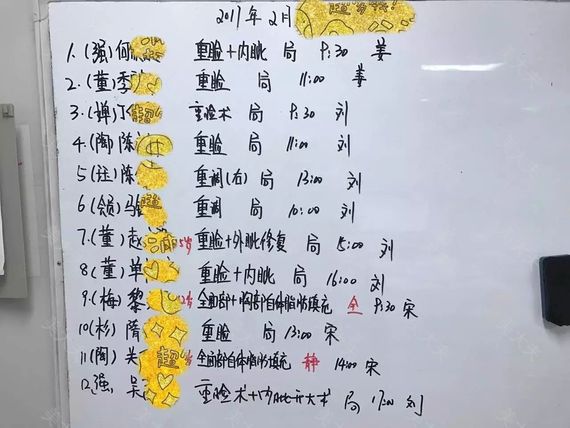 2017年2月
1.(强)何 重睑+内眦 局 9:30 姜
2.(董)季 重睑 局 11:00 姜
3.(婵)丁 重睑术 局 9:30 刘
4.(陶)陈 重睑 局 11:00 刘
5.(汪)陈 重调(右) 局 13:00 刘
6.(颌)马 重调 局 10:00 刘
7.(董)赵 5岁 重睑+外眦修复 局 15:00 刘
8.(董)单 重睑+内眦 局 16:00 刘
9.(梅)黎 岁 全面部+胸部自体脂肪填充 全 9:30 宋
10.(杉)隋 重睑 局 13:00 宋
11.(陶)关 超 岁 全面部自体脂肪填充 静 14:00 宋
12.强, 吴 重睑术+内眦开大术 局 17:00 刘